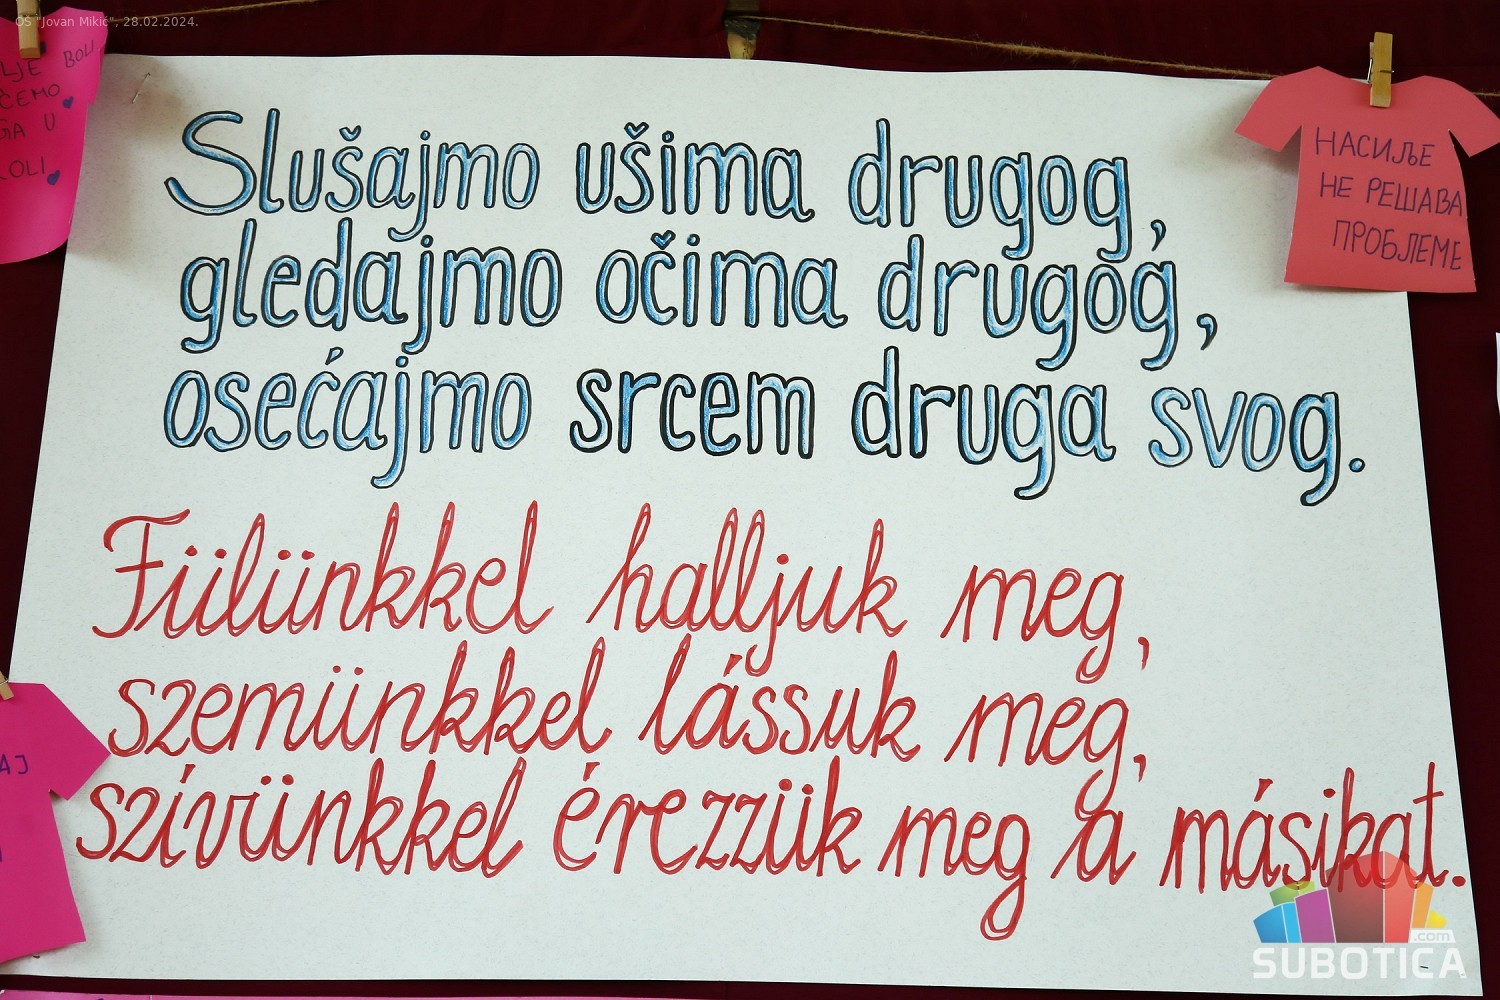 OŠ "Jovan Mikić", 28.02.2024.
BOLI
ĆEMO
U
Slušajmo ušima drugog,
gledajmo očima drugog,
osećajmo srcem druga svog.
Fülünkkel halljuk meg,
szemünkkel lássuk meg,
szívünkkel érezzük meg a másikat.
НАСИЉЕ
НЕ РЕШАВА
ПРОБЛЕМЕ
.com
SUBOTICA